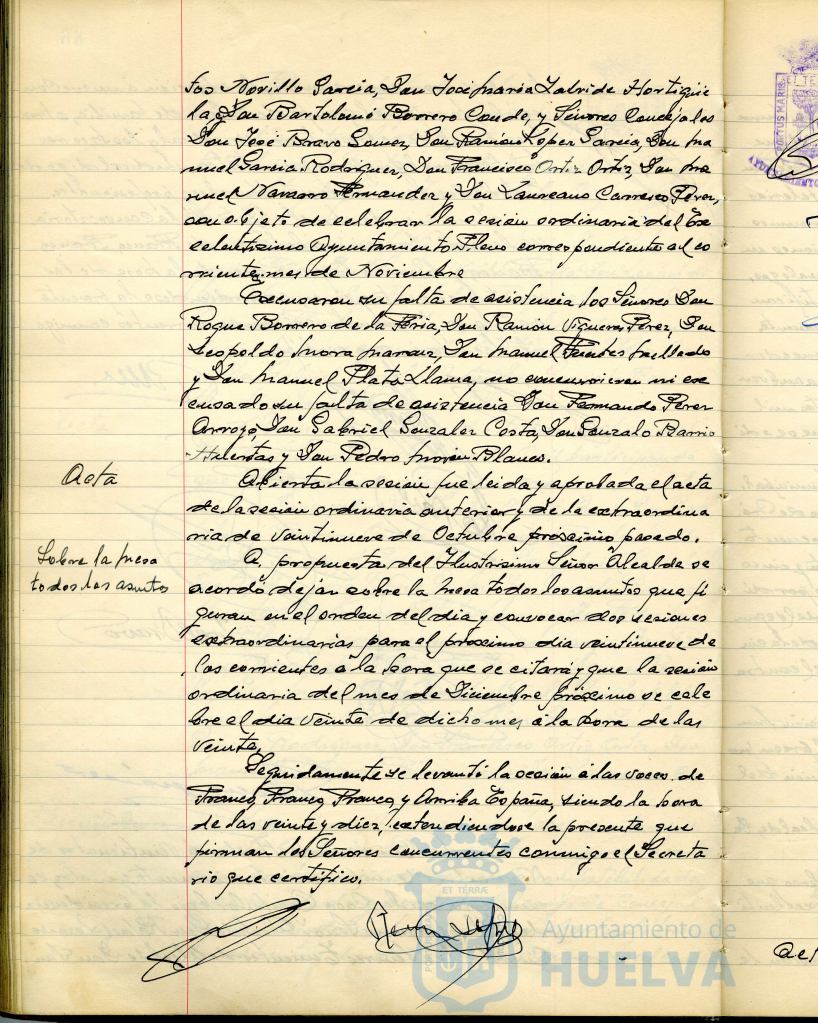 tos Novillo Garcia, Don José Maria Zalvide Hortigüe
la, y Don Bartolomé Borrero Conde, y Señores Concejales
Don José Bravo Gomez, Don Ramón Lopez Garcia, Don Ma
nuel Garcia Rodriguez, Don Francisco Ortiz Ortiz, Don Ma
nuel Navarro Fernandez y Don Laureano Carrasco Perez,
con objeto de celebrar la sesión ordinaria del Ex
celentisimo Ayuntamiento Pleno correspondiente al co
rriente mes de Noviembre
Excusaron su falta de asistencia los Señores Don
Roque Borrero de la Feria, Don Ramón Viguera Perez, Don
Leopoldo Morra Don Manuel Fuentes
y Don Manuel Plata Llama, no concurrieron ni ex
cusado su falta de asistencia Don Fernando Perez
Arroyo, Don Gabriel Gonzalez Costa, Don Gonzalo Barrio
Huertas y Don Pedro Morón Blanco.
Acta
Abierta la sesión fue leida y aprobada el acta
de la sesión ordinaria anterior y de la extraordina
ria de veintinueve de Octubre próximo pasado.
Sobre la mesa
todos los asuntos
A propuesta del Ilustrisimo Señor Alcalde se
acordó dejar sobre la mesa todos los asuntos que fi
guran en el orden del dia y convocar dos sesiones
extraordinarias para el próximo dia veintinueve de
los corrientes á la hora que se citará y que la sesión
ordinaria del mes de Diciembre próximo se cele
bre el dia veinte de dicho mes á la hora de las
veinte.
Seguidamente se levantó la sesión á las voces de
Franco, Franco, Franco, y Arriba España, siendo la hora
de las veinte y diez, extendiendose la presente que
firman los Señores concurrentes conmigo el Secreta
rio que certifico.
ET TERRÆ
Ayuntamiento de
HUELVA